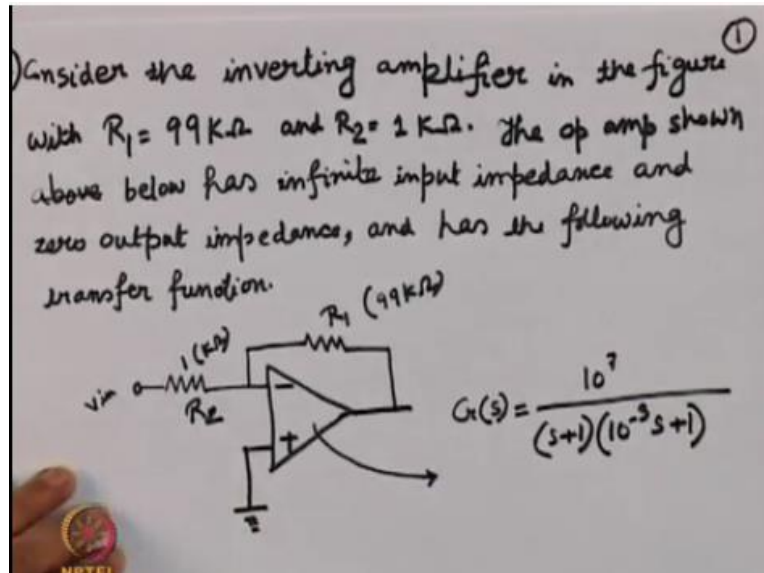 ①
Consider the inverting amplifier in the figure
with R₁ = 99 KΩ and R₂ = 1 KΩ. The op amp shown
above below has infinite input impedance and
zero output impedance, and has the following
transfer function.
R₁ (99KΩ)
1 (KΩ)
Vin
R₂
−
+
G(s) = 10⁷ / (s+1)(10⁻³s+1)
NPTEL